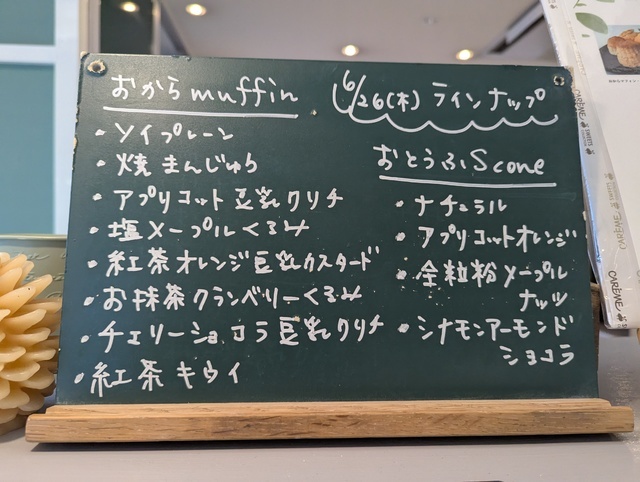 おからmuffin
・ソイプレーン
・焼まんじゅう
・アプリコット豆乳クリチ
・塩メープルくるみ
・紅茶オレンジ豆乳カスタード
・お抹茶クランベリーくるみ
・チェリーショコラ豆乳クリチ
・紅茶キウイ
6/26(木)ラインナップ
おとうふScone
・ナチュラル
・アプリコットオレンジ
・全粒粉メープル
ナッツ
・シナモンアーモンド
ショコラ
CARÊME
SWEETS
CARÊME